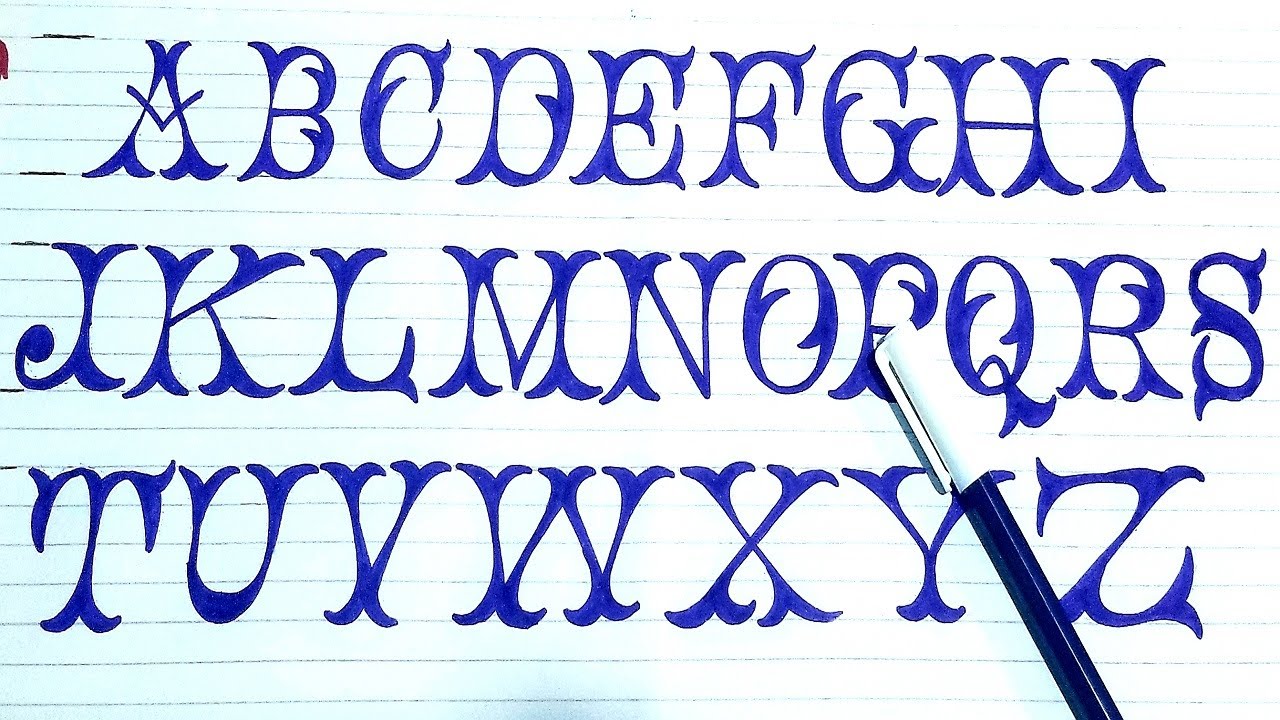 ABCDEFGHI
JKLMNOPQRS
TUVWXYZ